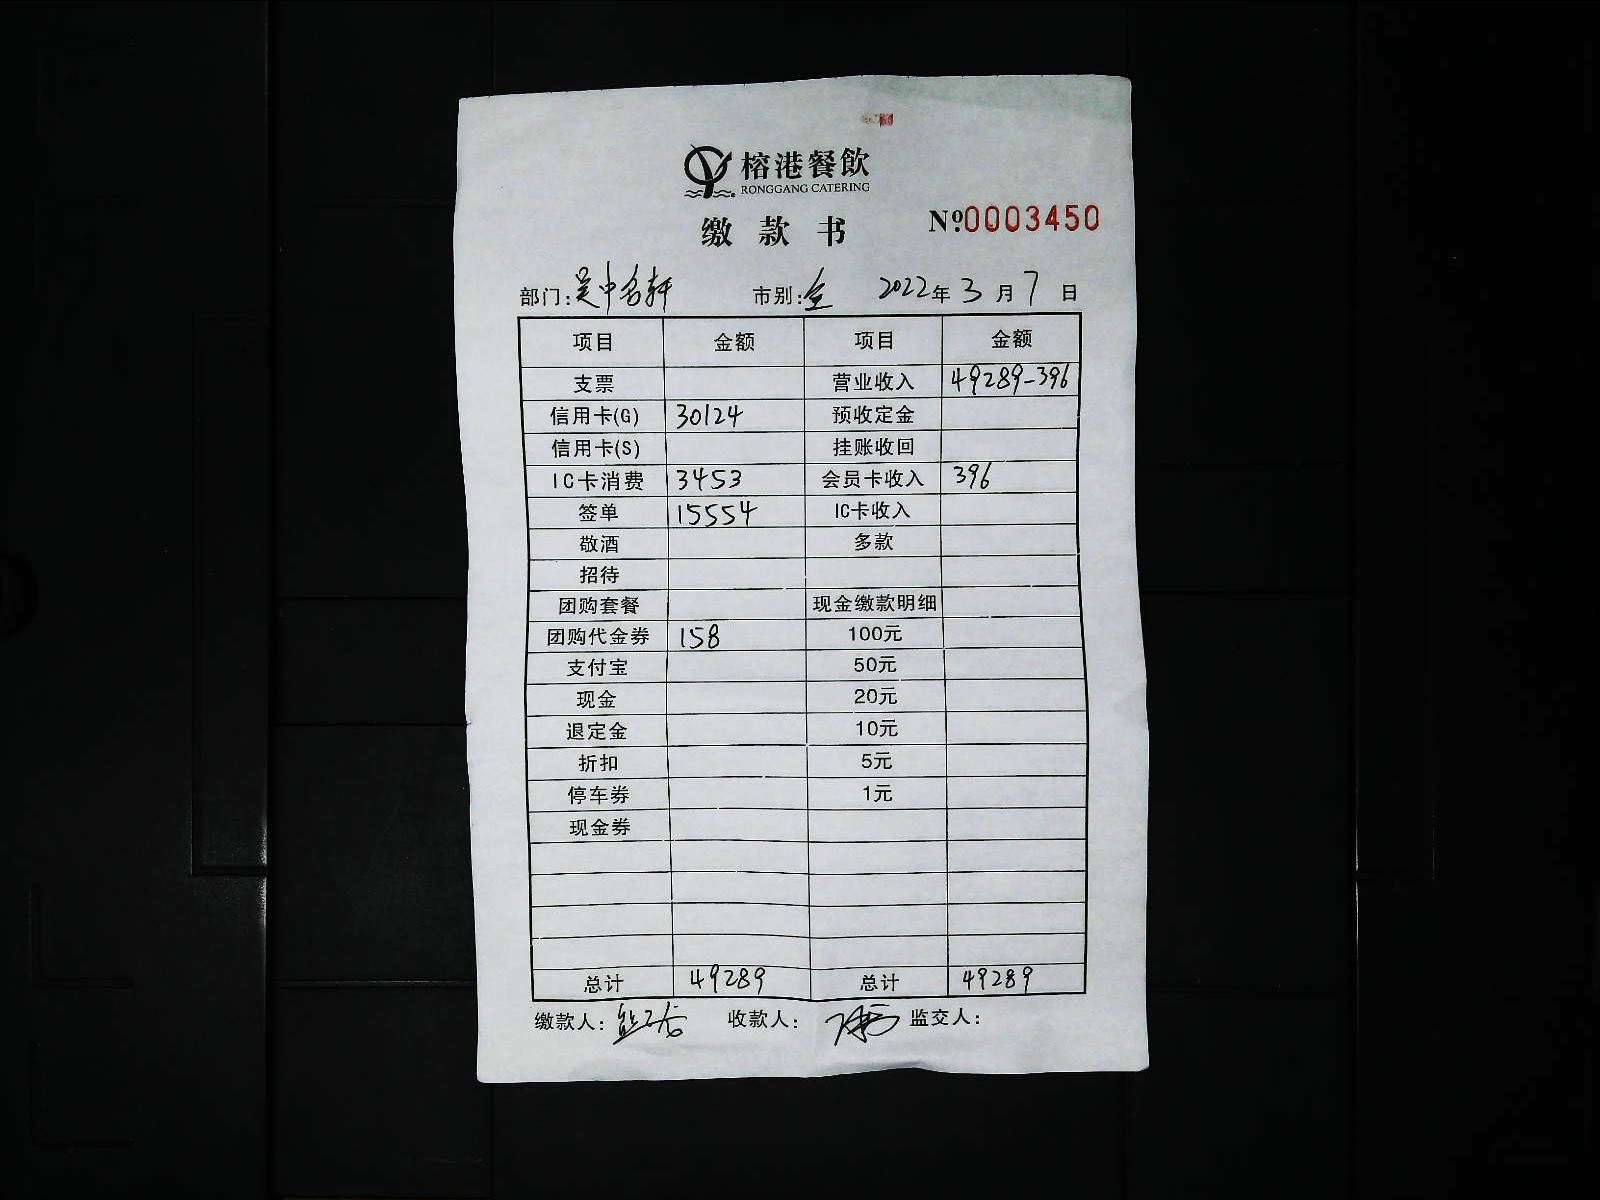 榕港餐飲
RONGGANG CATERING
缴款书 №:0003450
部门:吴中名轩 市别:全 2022年3月7日
项目 金额 项目 金额
支票 营业收入 49289-396
信用卡(G) 30124 预收定金
信用卡(S) 挂账收回
IC卡消费 3453 会员卡收入 396
签单 15554 IC卡收入
敬酒 多款
招待
团购套餐 现金缴款明细
团购代金券 158 100元
支付宝 50元
现金 20元
退定金 10元
折扣 5元
停车券 1元
现金券
总计 49289 总计 49289
缴款人: 收款人: 监交人: